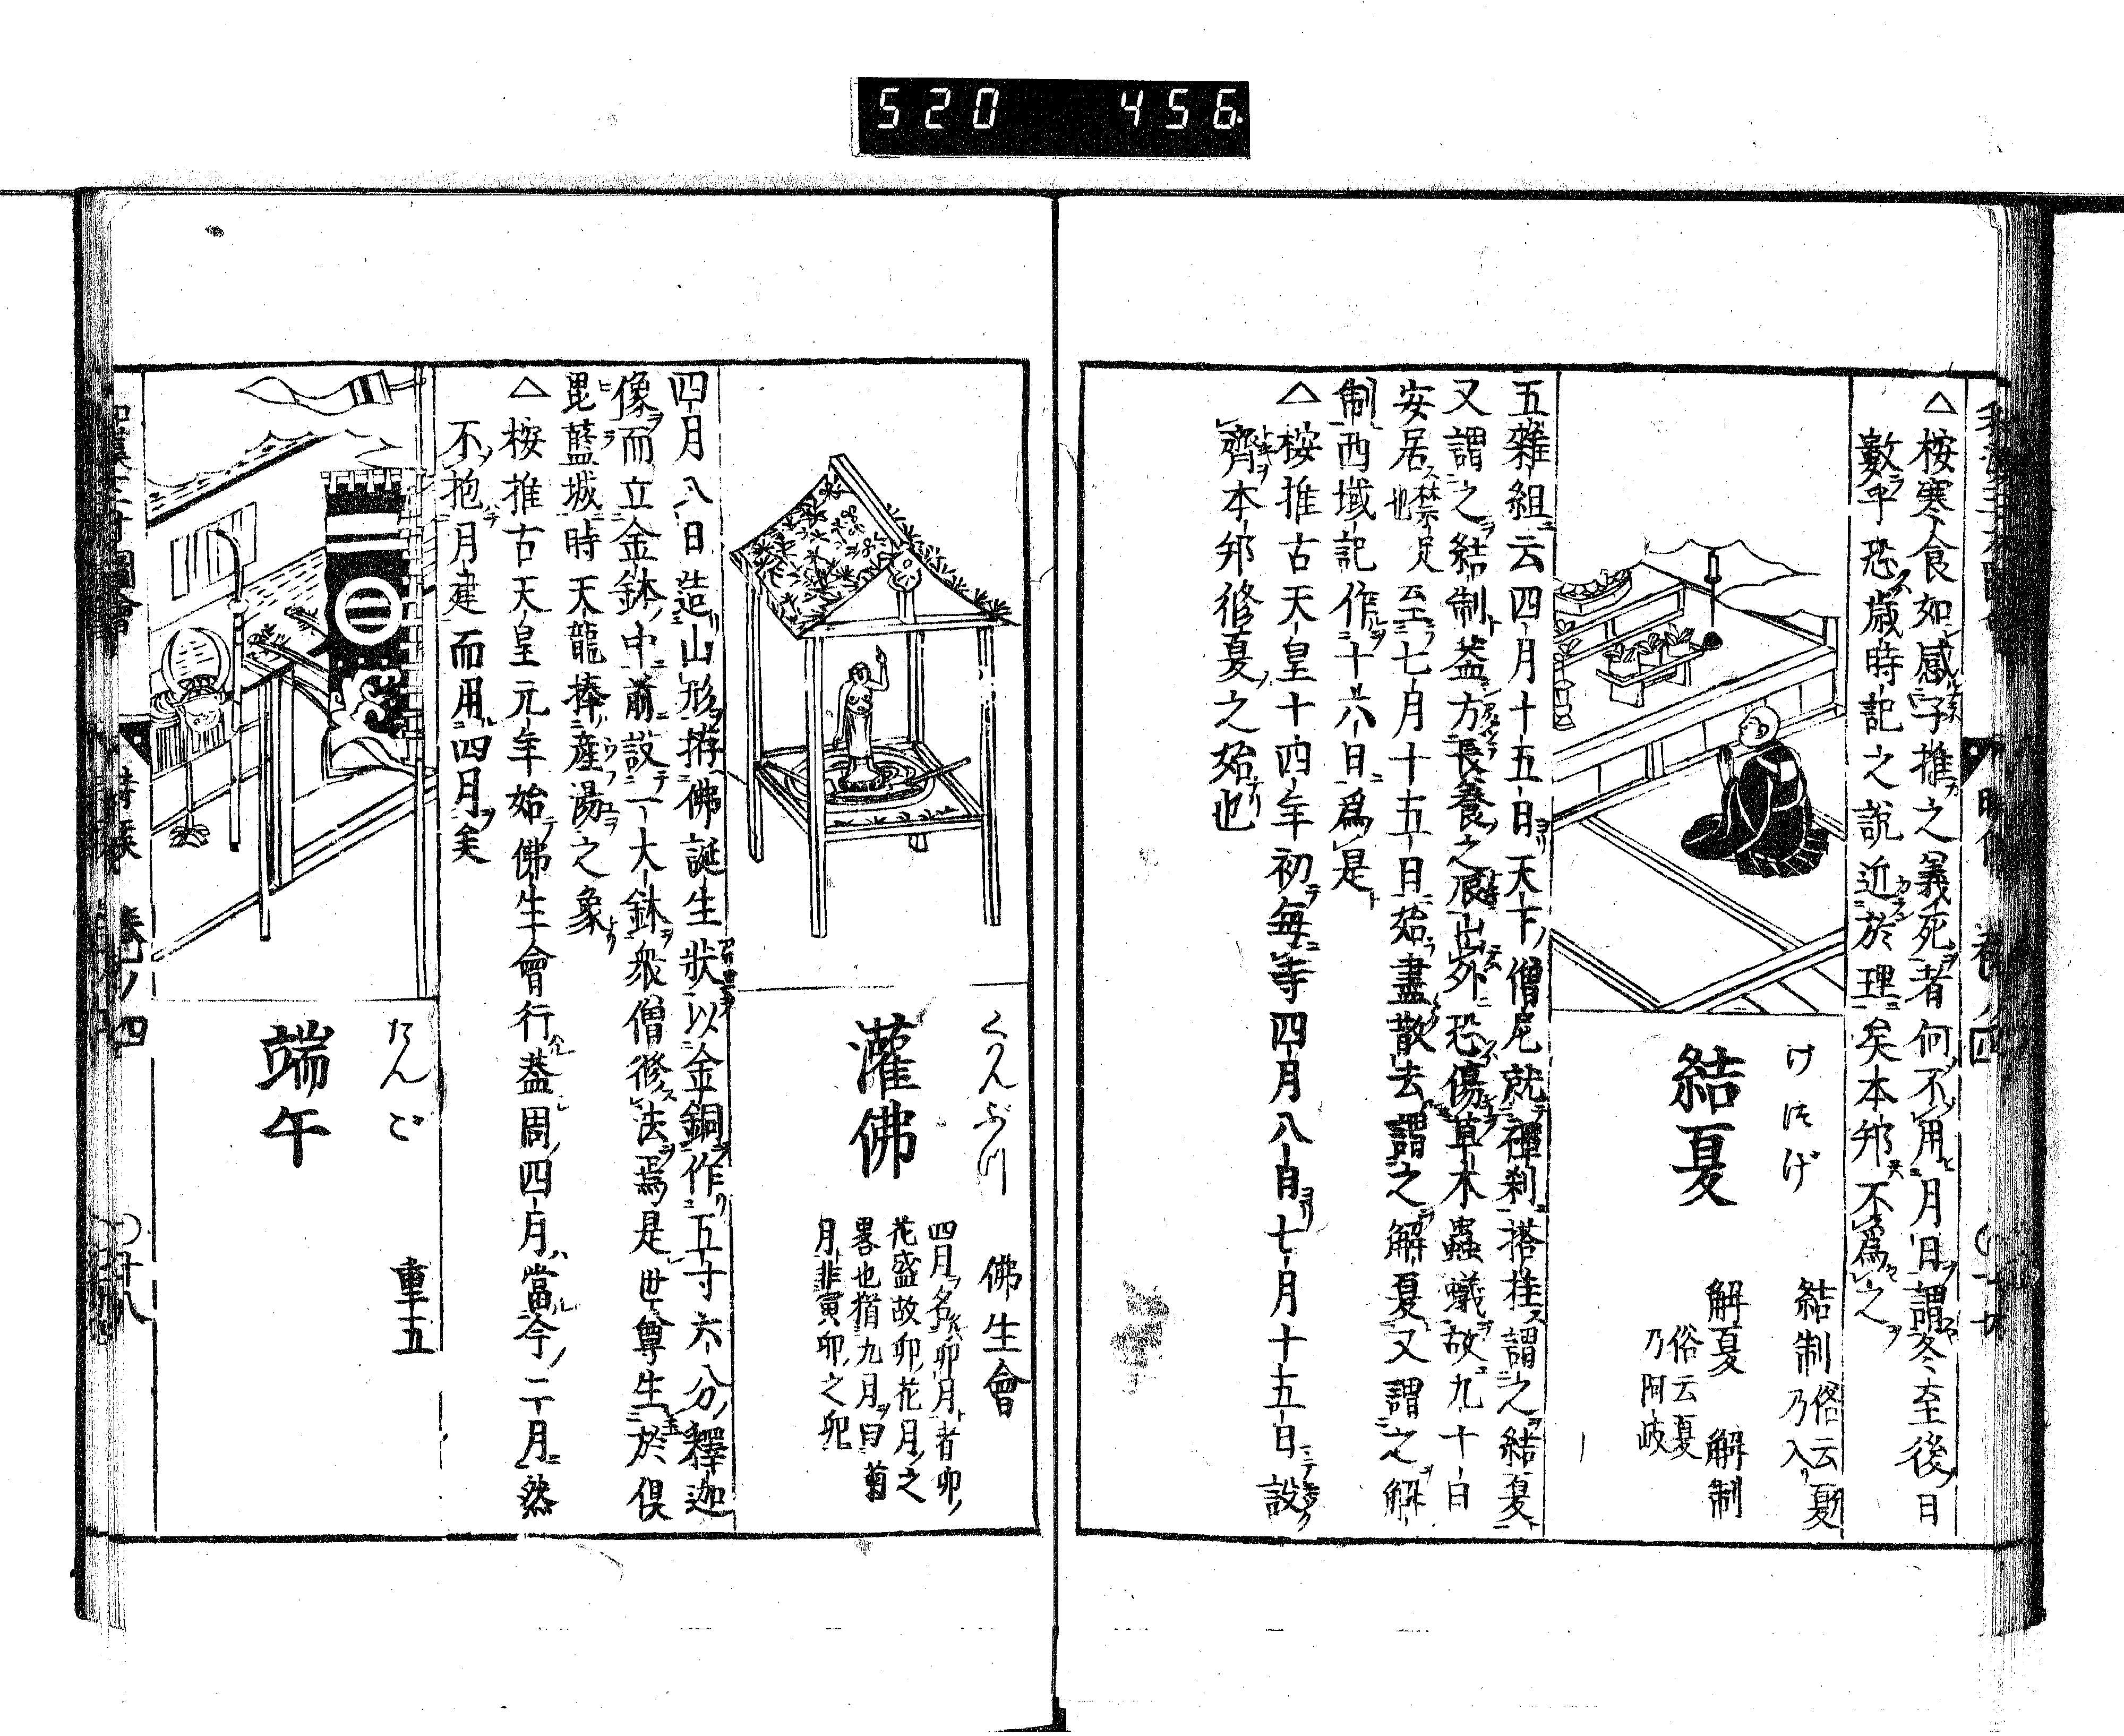 520 456
△桉寒食如感子推之義死者何不用月日謂冬至後日
數乎恐歳時記之說近於理矣本邦不為之
けつげ
結夏
結制 俗云夏
乃入
解夏 解制
俗云夏
乃阿岐
五雜組云四月十五日天下僧尼就禪刹搭挂謂之結夏
又謂之結制葢方長養之辰出外恐傷草木蟲蟻故九十日
安居 禁足
也 至七月十五日始盡散去謂之解夏又謂之解
制西域記作十六日為是
△桉推古天皇十四年初毎寺四月八日七月十五日設
齊本邦修夏之始也
くはんぶつ
灌佛
佛生會
四月名卯月者卯
花盛故卯花月之
畧也猶九月曰菊
月非寅卯之卯
四月八日造山形摸佛誕生狀以金銅作五寸六八分釋迦
像而立金鉢中前設一大鉢衆僧修法焉是世尊生於倶
毘藍城時天龍捧產湯之象
△桉推古天皇元年始佛生會行葢周四月當今二月然
不抱月建而用四月矣
たんご
端午
重五
時候 卷ノ四